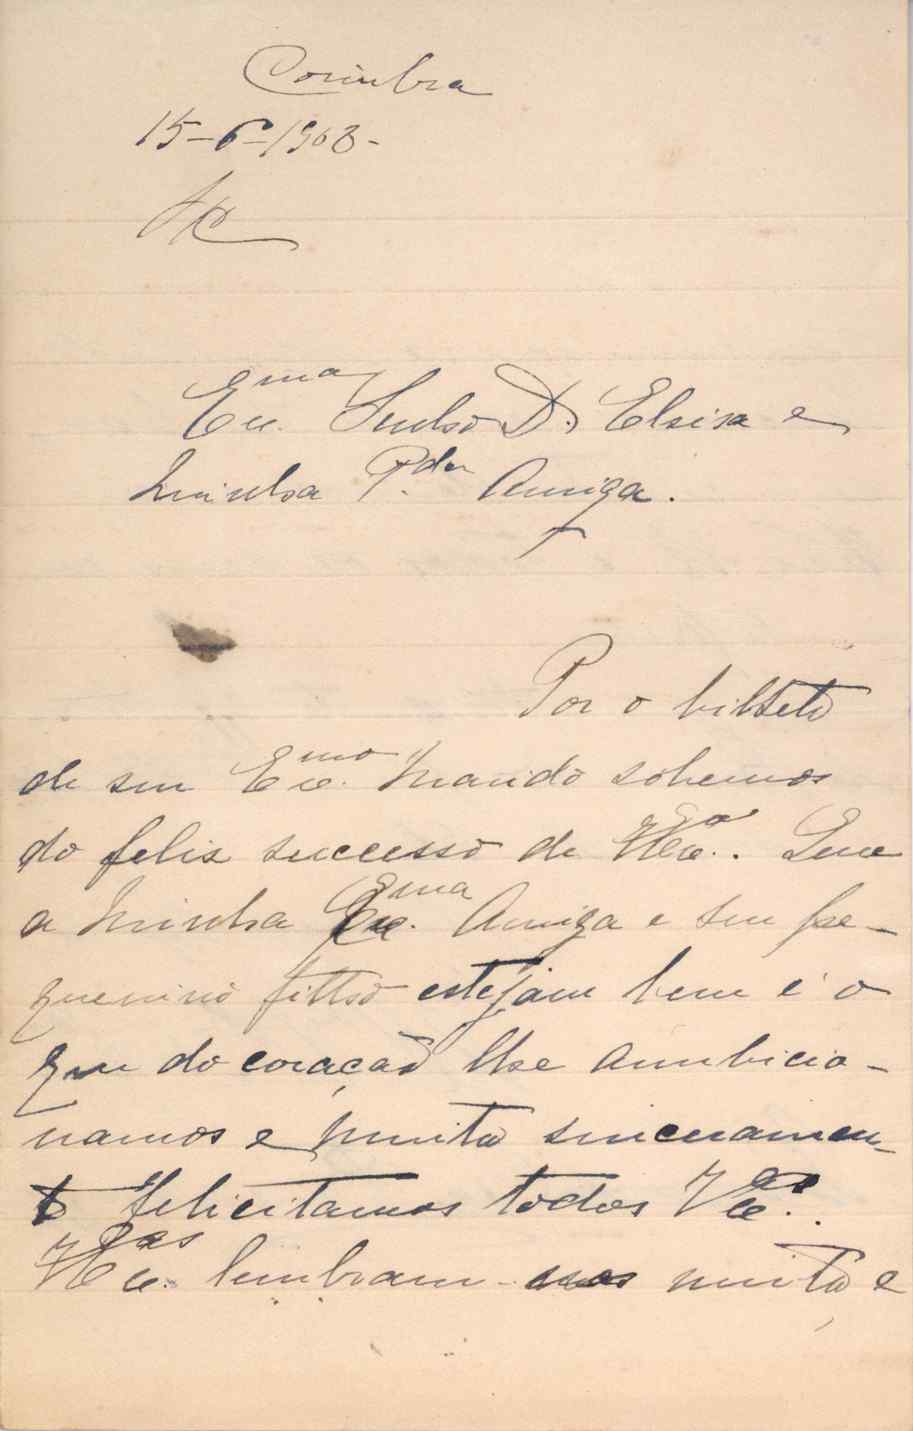 Coimbra
15-6-1903-
Exma Senhora D. Elisa e
minha P.da Amiga.
Por o bilhete
de seu Exmo. marido sobemos
do felis successo de V. Exa. Que
a minha Exma. Amiga e seu pe-
quenino filho estejam bem é o
que do coração lhe ambicio-
namos e muito sinceramen-
te felicitamos todos V. Exas.
V. Exas. lembram-nos muito e